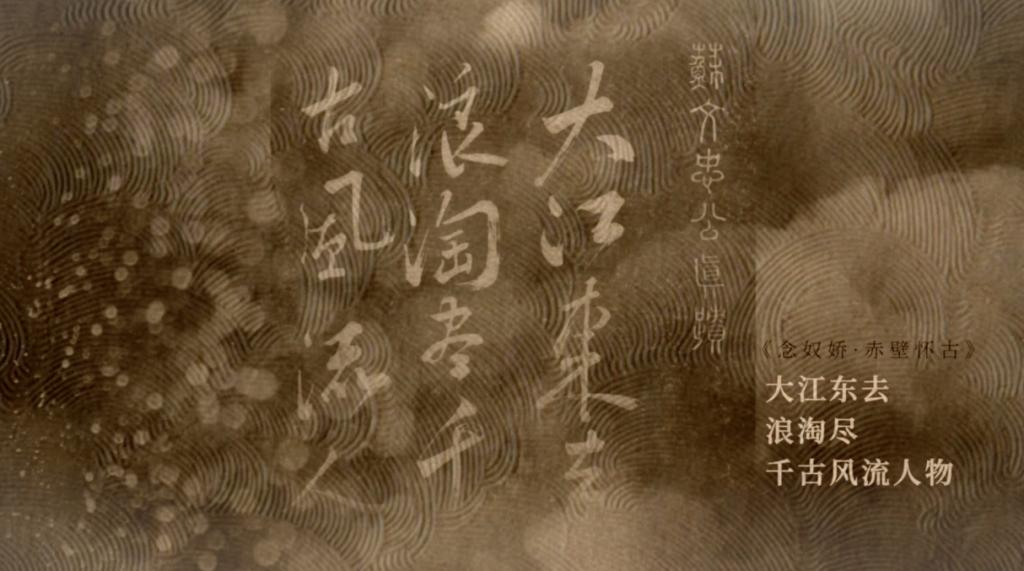 蘇文忠公真蹟
大江東去
浪淘尽千
古風流人
《念奴娇·赤壁怀古》
大江东去
浪淘尽
千古风流人物